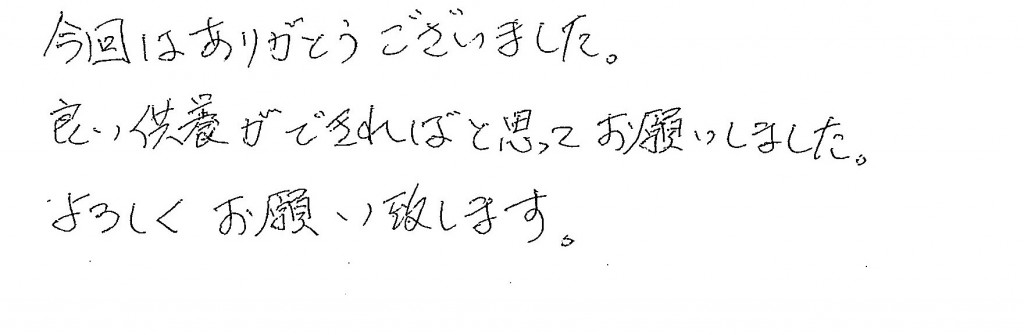 今回はありがとうございました。
良い供養ができればと思ってお願いしました。
よろしくお願い致します。